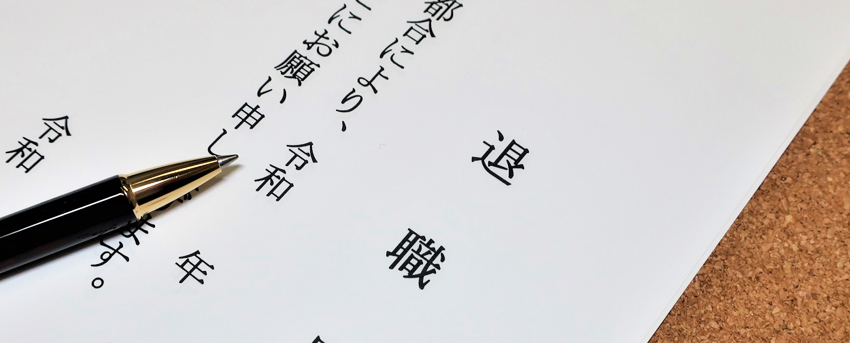 退職
都合により、令和　年
にお願い申し　ます。
令和